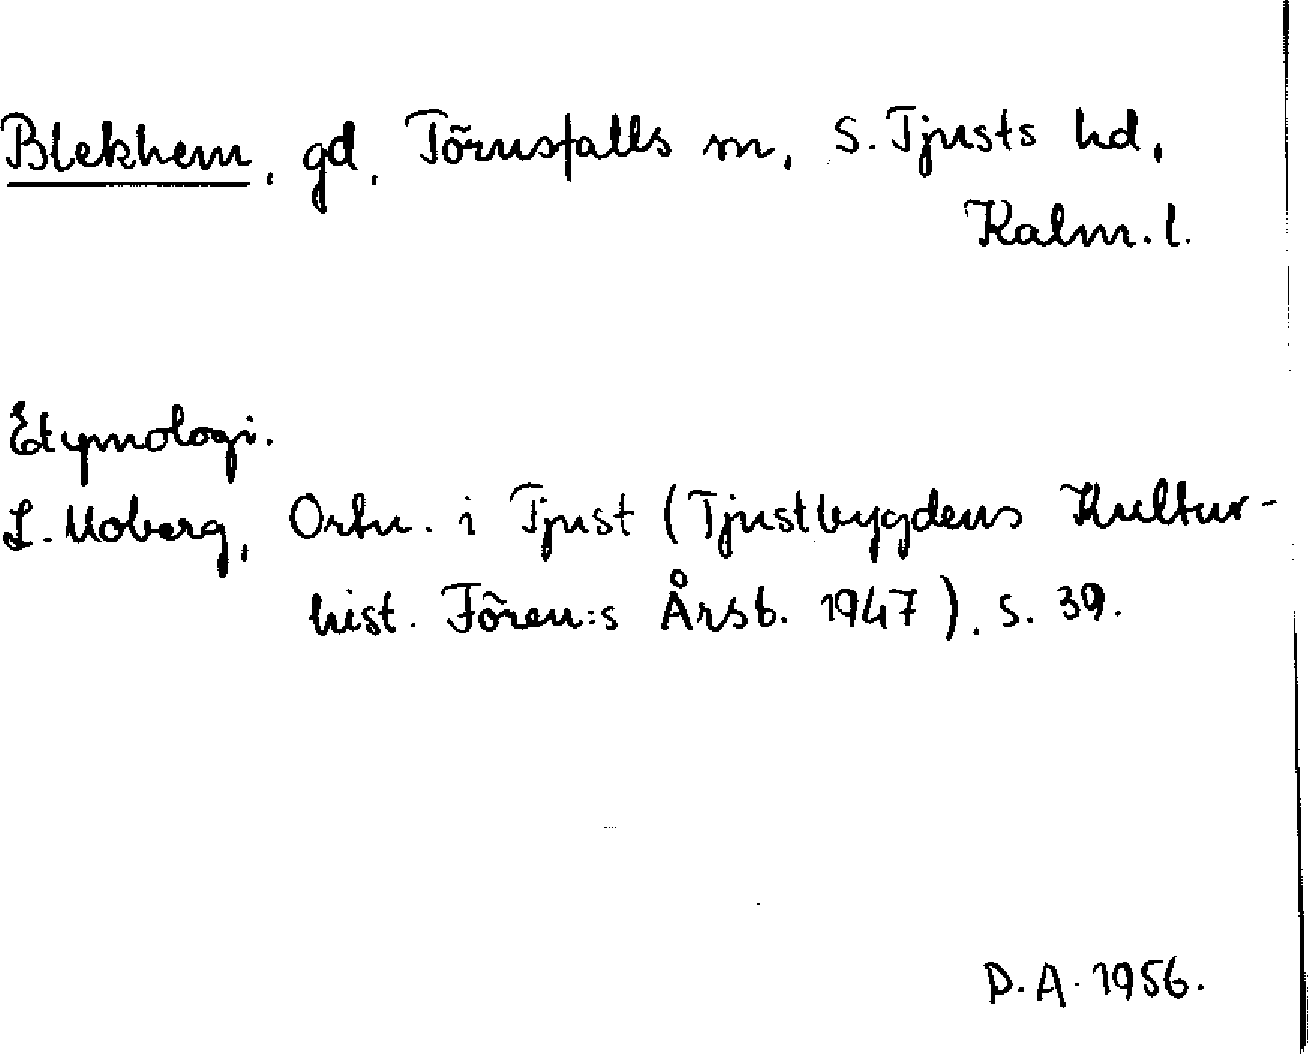 Blekhem, gd, Törnsfalls sn, S. Tjusts hd,
Kalm. l.
Etymologi.
L. Moberg, Ortn. i Tjust (Tjustbygdens Kultur-
hist. Fören:s Årsb. 1947), s. 39.
D.A. 1956.